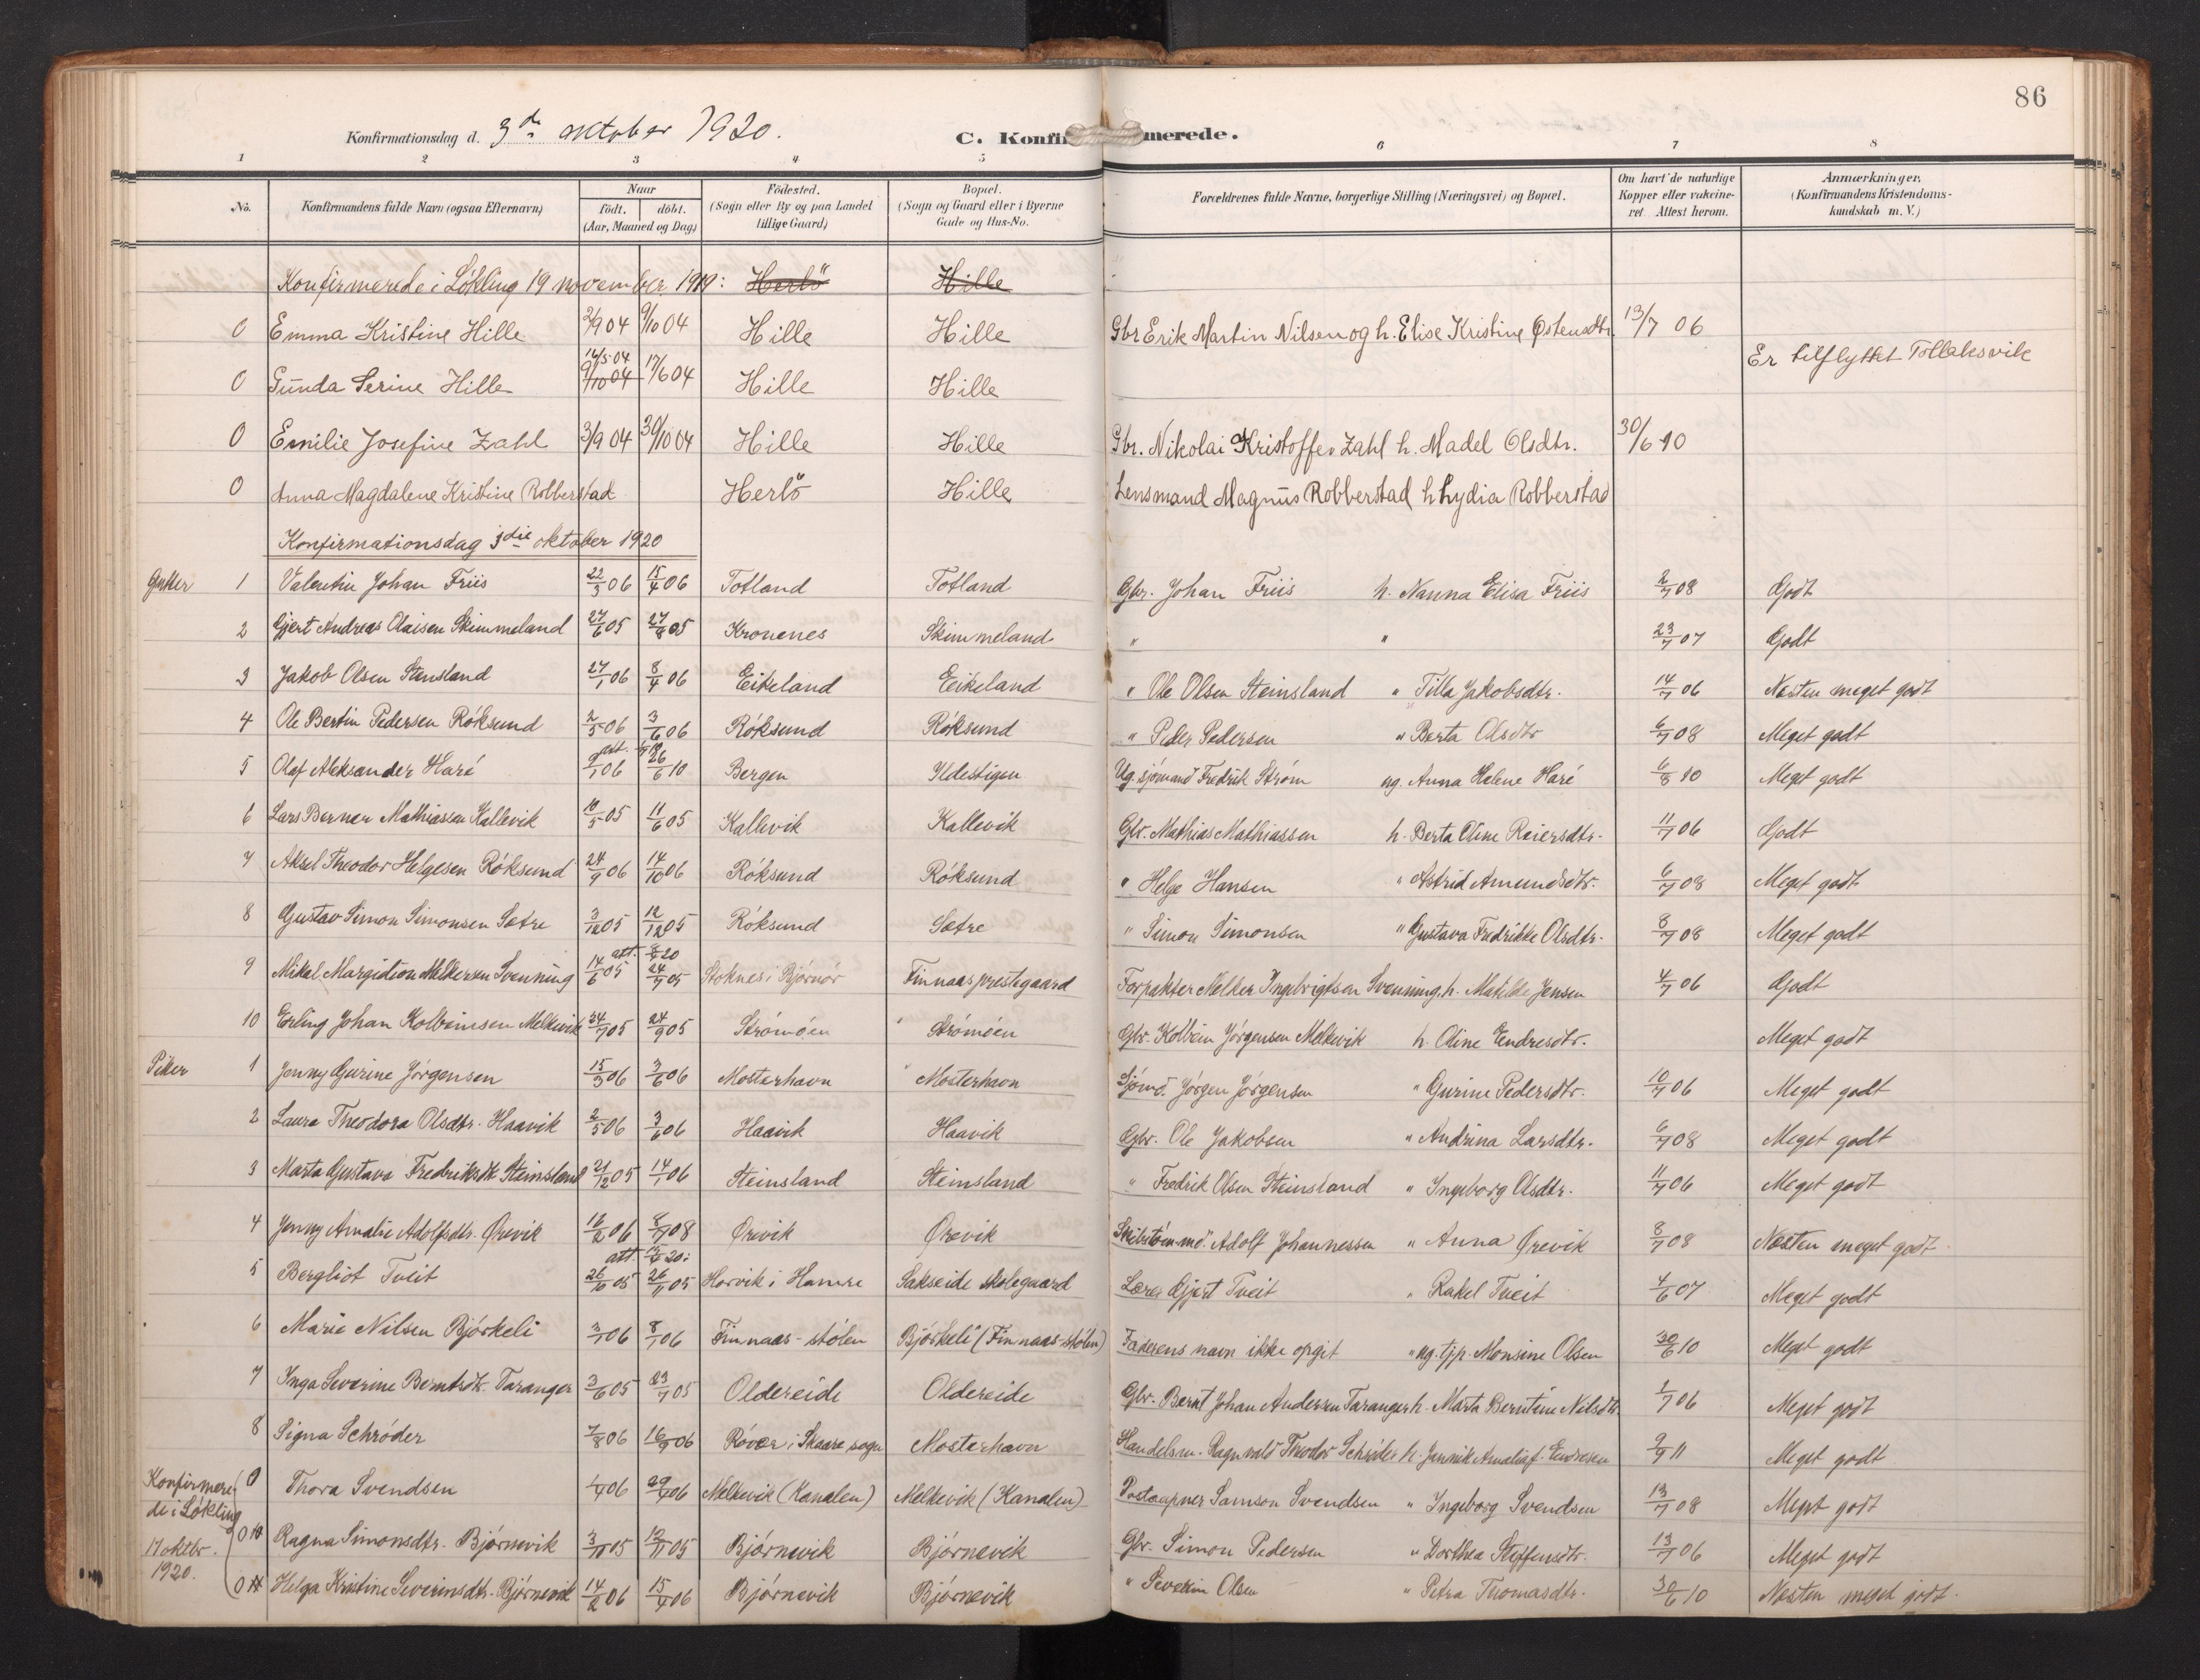 86
Konfirmationsdag d. 3de oktober 1920.
C. Konfirmerede.
1 2 3 4 5 6 7 8
No. Konfirmandens fulde Navn (ogsaa Efternavn) Naar født. døbt. (Aar, Maaned og Dag) Fødested. (Sogn eller By og paa Landet tillige Gaard) Bopæl. (Sogn og Gaard eller i Byerne Gade og Hus-No. Forældrenes fulde Navne, borgerlige Stilling (Næringsvei) og Bopæl. Om havt de naturlige Kopper eller vakcineret. Attest herom. Anmærkninger, (Konfirmandens Kristendomskundskab m. V.)
Konfirmerede i Løkling 19 november 1919: Herlö Hille
0 Emma Kristine Hille 2/9 04 9/10 04 Hille Hille Gbr Erik Martin Nilsen og h. Elise Kristine Østensdtr. 13/7 06
0 Gunda Serine Hille 16/5 04 9/10 04 17/6 04 Hille Hille Er tilflyttet Tollaksvik
0 Emilie Josefine Zahl 3/9 04 30/10 04 Hille Hille Gbr. Nikolai Kristoffer Zahl h. Madel Olsdtr. 30/6 10
0 Anna Magdalene Kristine Robberstad Herlö Hille Lensmand Magnus Robberstad h Lydia Robberstad
Konfirmationsdag 3die oktober 1920
Gutter 1 Valentin Johan Friis 22/3 06 15/4 06 Totland Totland Gbr. Johan Friis h. Nanna Elisa Friis 2/7 08 Godt
2 Gjert Andreas Olaisen Skimmeland 27/6 05 27/8 05 Kronenes Skimmeland " " 23/7 07 Godt
3 Jakob Olsen Stensland 27/1 06 8/4 06 Eikeland Eikeland " Ole Olsen Steinsland " Tilla Jakobsdtr. 14/7 06 Næsten meget godt
4 Ole Bertin Pedersen Røksund 2/5 06 3/6 06 Røksund Røksund " Peder Pedersen " Berta Olsdtr 6/7 08 Meget godt
5 Olaf Aleksander Haré 9/1 06 26/6 10 Bergen Yldestigen Ug. sjömand Fredrik Strøm ug. Anna Helene Haré 6/8 10 Meget godt
6 Lars Berner Mathiassen Kallevik 10/5 05 11/6 05 Kallevik Kallevik Gbr. Mathias Mathiassen h. Berta Oline Reiersdtr. 11/7 06 Godt
7 Aksel Theodor Helgesen Røksund 24/9 06 14/10 06 Røksund Røksund " Helge Hansen " Astrid Amundsdtr. 6/7 08 Meget godt
8 Gustav Simon Simonsen Sætre 3/12 05 12/12 05 Røksund Sætre " Simon Simonsen " Gustava Fredrikke Olsdtr. 8/7 08 Meget godt
9 Mikal Margidion Melkersen Svenning 14/6 05 24/7 05 Stoknes i Bjørnør Finnaas prestegaard Forpakter Melker Ingebrigtsen Svenning, h. Matilde Jensen 4/7 06 Godt
10 Erling Johan Kolbeinsen Melkevik 24/7 05 24/9 05 Strömöen " Strömöen Gbr. Kolbein Jørgensen Melkevik h. Oline Endresdtr. Meget godt
Piker 1 Jenny Gurine Jørgensen 15/3 06 3/6 06 Mosterhavn " Mosterhavn Sjömd. Jørgen Jørgensen " Gurine Pedersdtr. 10/7 06 Meget godt
2 Laura Theodora Olsdtr. Haavik 2/5 06 3/6 06 Haavik Haavik Gbr. Ole Jakobsen " Andrina Larsdtr. 6/7 08 Meget godt
3 Marta Gustava Fredriksdtr Steinsland 21/12 05 14/1 06 Steinsland Steinsland " Fredrik Olsen Steinsland " Ingeborg Olsdtr. 11/7 06 Meget godt
4 Jenny Amalie Adolfsdtr. Ørevik 12/2 06 8/7 08 Ørevik Ørevik Adolf Johannessen " Anna Ørevik 8/7 08 Næsten meget godt
5 Bergliot Tveit 26/6 05 26/11 05 Horvik i Hamre Sakseide skolegaard Lærer Gjert Tveit " Rakel Tveit 4/6 07 Meget godt
6 Marie Nilsen Bjørkeli 3/1 06 8/1 06 Finnaas-stølen Bjørkeli (Finnaas-stølen) Faderens navn ikke opgit " ug. tjp. Monsine Olsen 30/6 10 Meget godt
7 Inga Severine Berntsdtr. Taranger 3/6 05 23/7 05 Oldereide Oldereide Gbr. Bernt Johan Andersen Taranger h. Marta Berntine Nilsdtr. 2/7 06 Meget godt
8 Signa Schrøder 7/8 06 16/9 06 Røvær i Skaare sogn Mosterhavn Handelsm. Ragnvald Theodor Schrøder h. Jannik Amalia f. Endresen 9/9 11 Meget godt
Konfirmerede i Løkling 17 oktbr. 1920.
0 Thora Svendsen 1/7 06 29/7 06 Melkevik (Kanalen) Melkevik (Kanalen) Postaapner Samson Svendsen " Ingeborg Svendsen 13/7 08 Meget godt
0 Ragna Simonsdtr. Bjørnevik 3/11 05 12/11 05 Bjørnevik Bjørnevik Gbr. Simon Pedersen " Dorthea Steffensdtr. 13/7 06 Meget godt
0 Helga Kristine Severinsdtr. Bjørnevik 14/2 06 15/4 06 Bjørnevik Bjørnevik " Severin Olsen " Petra Thomasdtr. 30/6 10 Næsten meget godt.